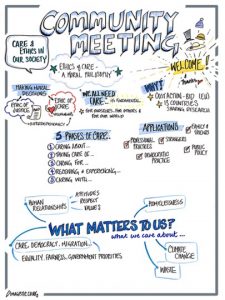 COMMUNITY
MEETING
CARE &
ETHICS IN
OUR SOCIETY
ETHICS of CARE -
A MORAL PHILOSOPHY
WELCOME!
MAKING MORAL
DECISIONS
ETHICS OF
JUSTICE
ETHICS OF
CARE
INTERDEPENDENCY
WE ALL NEED
CARE
FOR OURSELVES, OTHERS &
FOR OUR WORLD
WHY?
COST ACTION
15 COUNTRIES
SHARING RESEARCH
5 PHASES OF CARE
① CARING ABOUT...
② TAKING CARE OF...
③ CARING FOR...
④ RECEIVING & EXPERIENCING...
⑤ CARING WITH...
APPLICATIONS
PROFESSIONAL
PRACTICES
DEMOCRATIC
PRACTICE
FAMILY &
FRIENDS
PUBLIC
POLICY
HUMAN
RELATIONSHIPS
ATTITUDES
RESPECT
VALUES
HOMELESSNESS
WHAT MATTERS TO US?
what we care about...
CARE, DEMOCRACY, MIGRATION...
EQUALITY, FAIRNESS, GOVERNMENT PRIORITIES
CLIMATE
CHANGE
WASTE